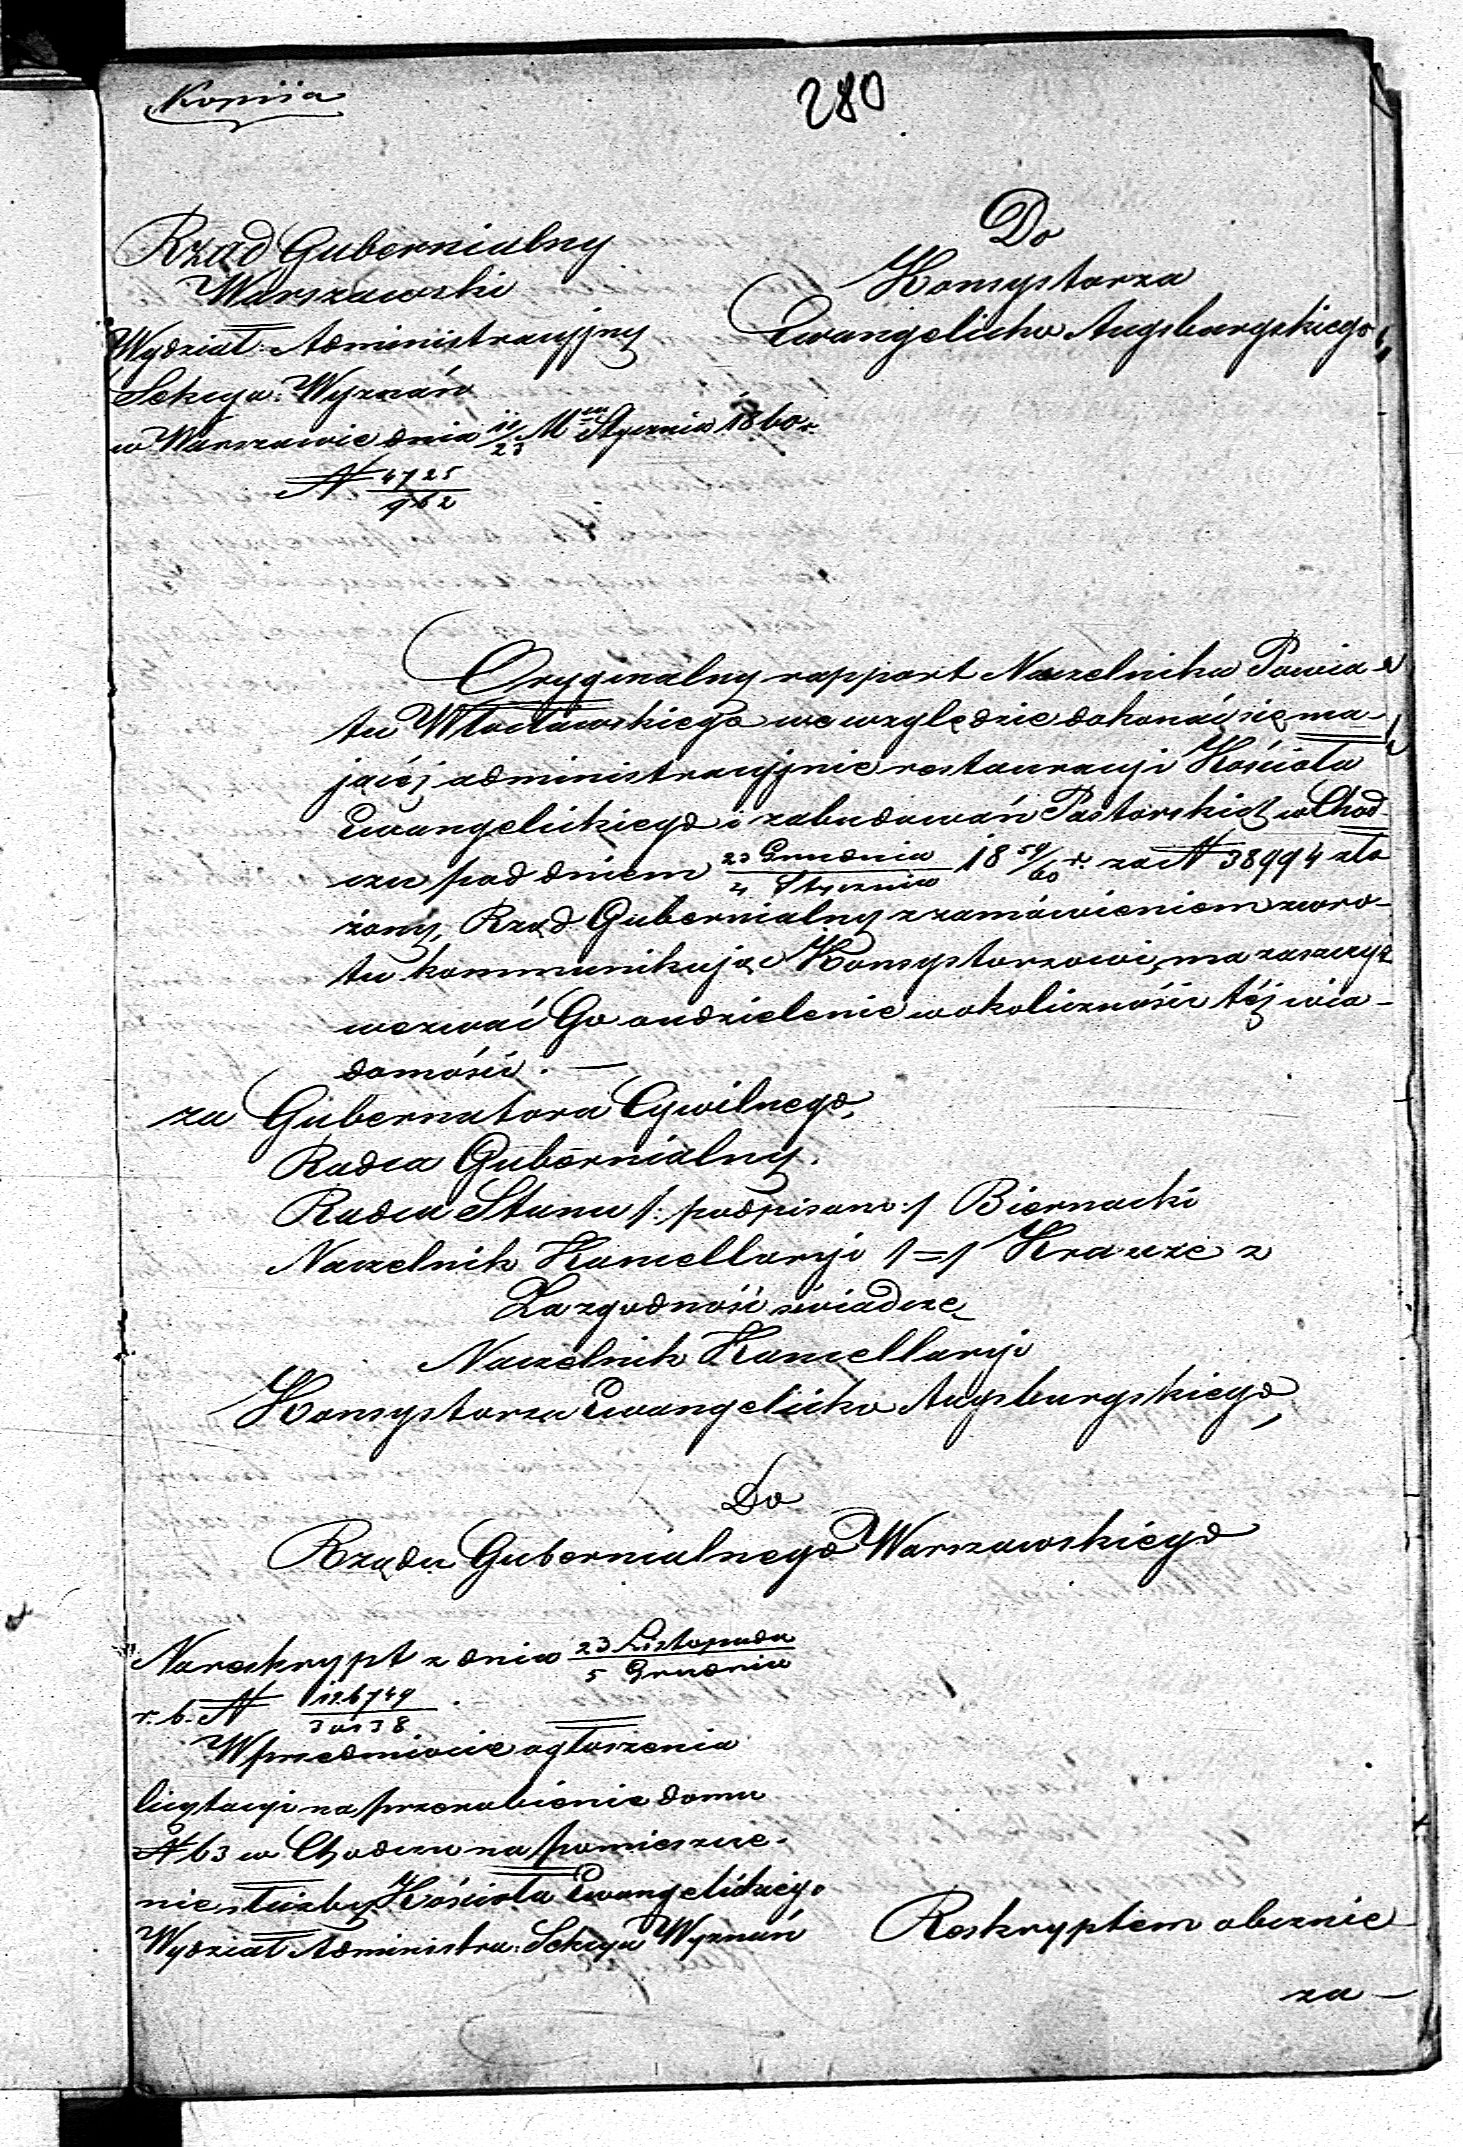 Kopiia
280
Rząd Gubernialny
Warszawski
Wydział Administracyjny
Sekcya Wyznań
w Warszawie dnia 11/23 M Stycznia 1860 r.
N 4725/962
Do
Konsystorza
Ewangelicko Augsburgskiego
Oryginalny rapport Naczelnika Powia-
tu Włocławskiego we względzie dokonać się ma-
jącéj administracyjnie restauracyi Kościoła
Ewangelickiego i zabudowań Pastorskich w Chod-
czu pod dniem 23 Grudnia/4 Stycznia 18 59/60 r. za N 38994 zło
żony, Rząd Gubernialny z zamówieniem zwro-
tu kommunikując Konsystorzowi, ma zaszczyt
wezwać Go o udzielenie w okoliczności téj wia-
domości. —
za Gubernatora Cywilnego,
Radca Gubernialny.
Radca Stanu /: podpisano :/ Biernacki
Naczelnik Kancellaryi /=/ Krauze
Za zgodność świadczę
Naczelnik Kancellaryi
Konsystorza Ewangelicko Augsburgskiego,
Do
Rządu Gubernialnego Warszawskiego
Na reskrypt z dnia 23 Listopada/5 Grudnia
r. b. N 126749
W przedmiocie ogłoszenia
licytacyi na przerobienie domu
N 63 w Chodczu na pomieszcze-
nie służby Kościoła Ewangelickiego
Wydział Administra: Sekcya Wyznań
Reskryptem obcznie
za-